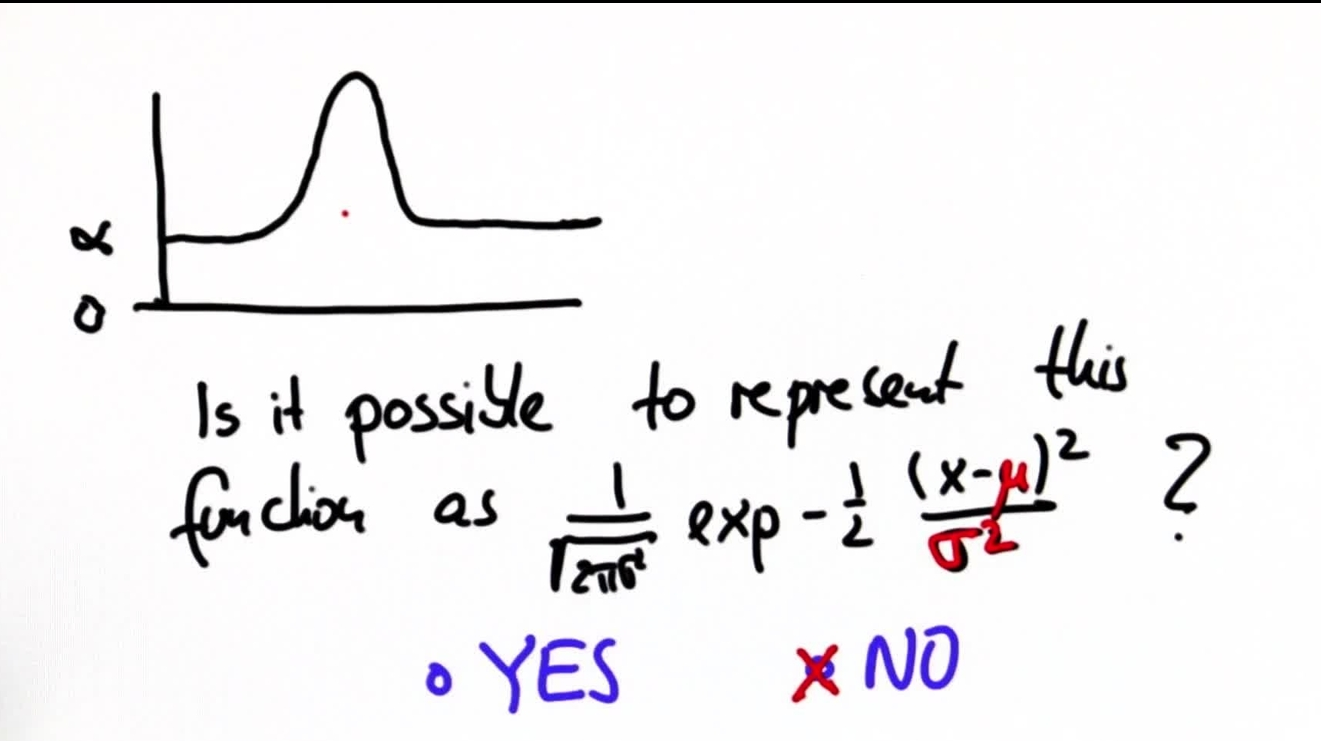 α
0
Is it possible to represent this
function as 1/√2πσ² exp - 1/2 (x-μ)²/σ² ?
YES NO